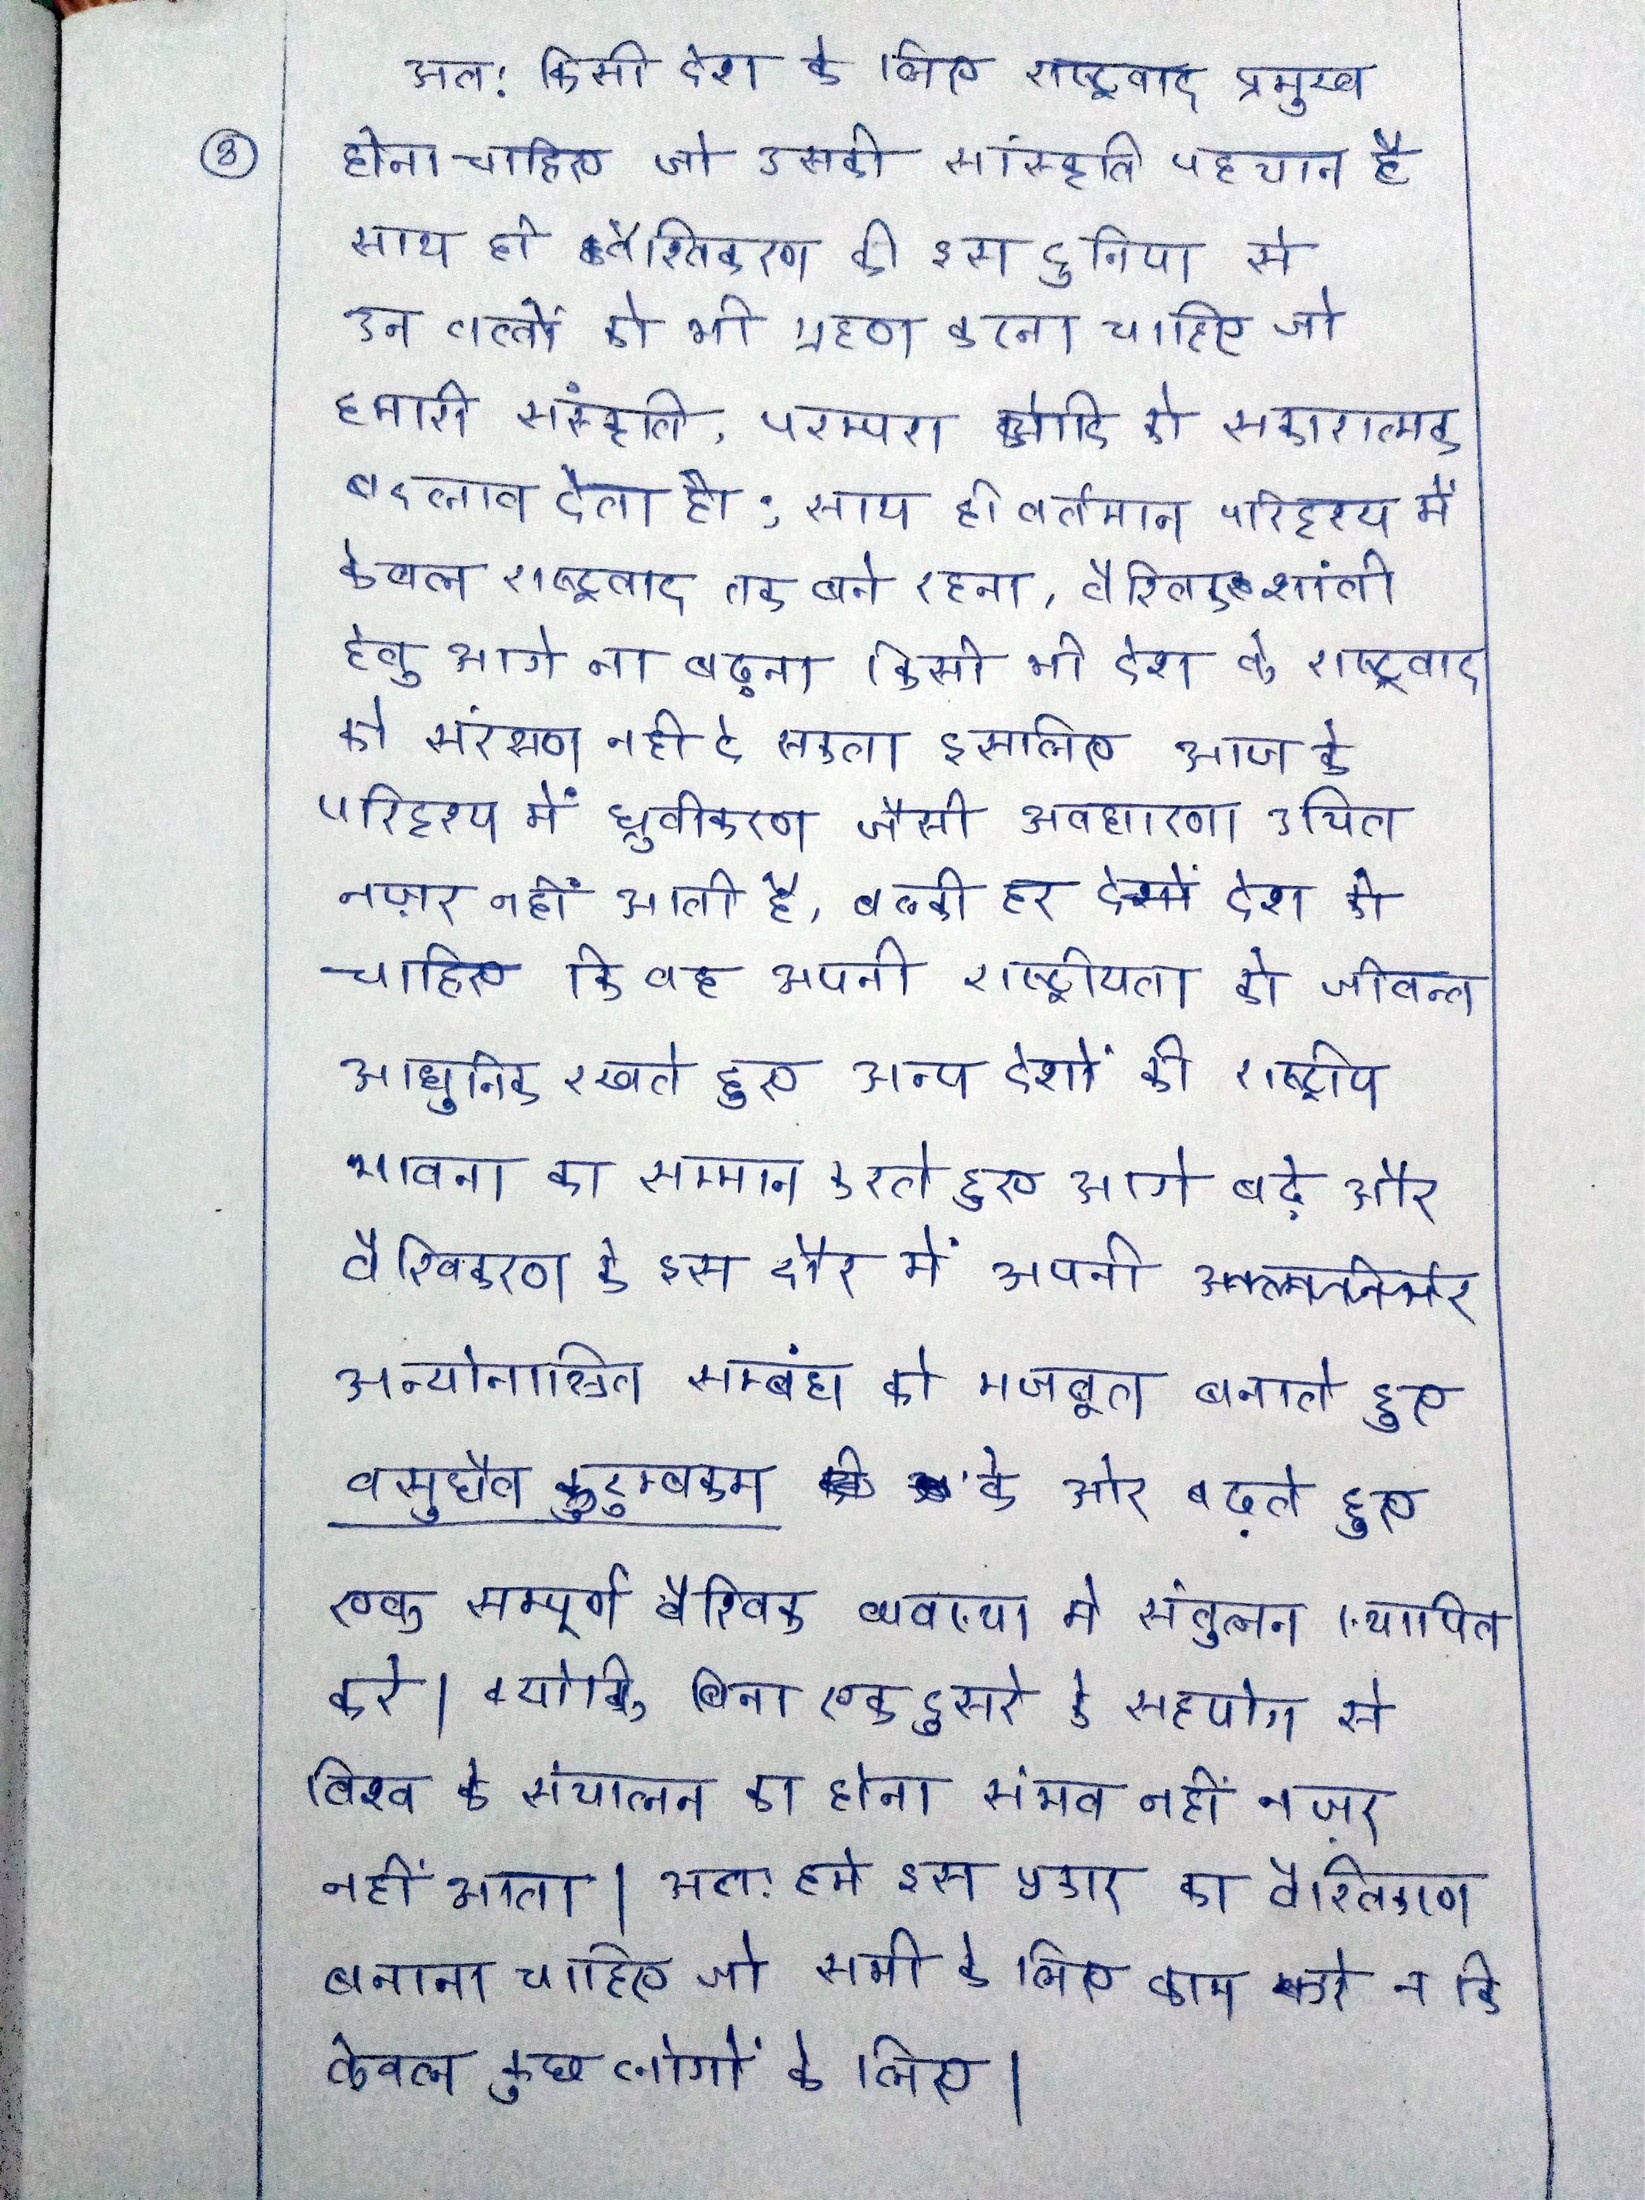 अतः किसी देश के लिए राष्ट्रवाद प्रमुख
③ होना चाहिए जो उसकी सांस्कृति पहचान है
साथ ही वैश्विकरण की इस दुनिया से
उन तत्वों को भी ग्रहण करना चाहिए जो
हमारी संस्कृति, परम्परा आदि को सकारात्मक
बदलाव देता हो; साथ ही वर्तमान परिदृश्य में
केवल राष्ट्रवाद तक बने रहना, वैश्विक शांती
हेतु आगे ना बढ़ना किसी भी देश के राष्ट्रवाद
को संरक्षण नही दे सकता इसलिए आज के
परिदृश्य में ध्रुवीकरण जैसी अवधारणा उचित
नज़र नहीं आती है, बल्की हर देश को
चाहिए कि वह अपनी राष्ट्रीयता को जीवन्त
आधुनिक रखते हुए अन्य देशों की राष्ट्रीय
भावना का सम्मान करते हुए आगे बढ़े और
वैश्विकरण के इस दौर में अपनी
अन्योनाश्रित सम्बंध को मजबूत बनाते हुए
वसुधैव कुटुम्बकम के ओर बढ़ते हुए
एक सम्पूर्ण वैश्विक व्यवस्था मे संतुलन स्थापित
करे। क्योकि बिना एक दुसरे के सहयोग से
विश्व के संचालन का होना संभव नहीं नज़र
नहीं आता। अतः हमे इस प्रकार का वैश्विकरण
बनाना चाहिए जो सभी के लिए काम करे न कि
केवल कुछ लोगों के लिए।